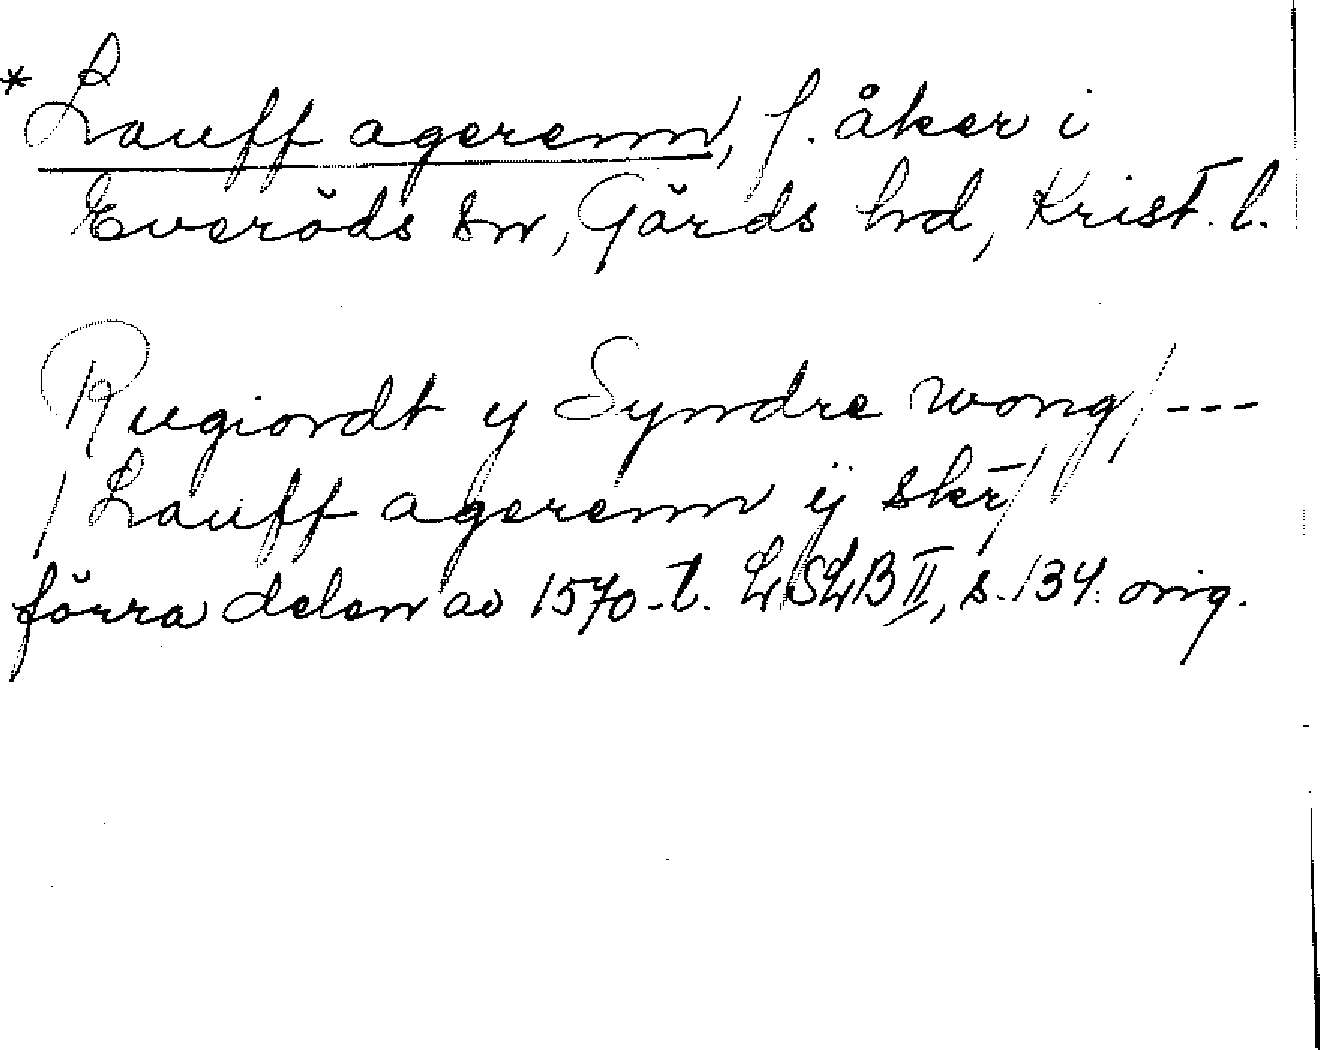 * Lauff agerenn, f. åker i
Everöds sn, Gärds hd, Krist. l.
Rugiordt y Syndre wong / ---
/ Lauff agerenn ÿ skr /
förra delen av 1570-t. LSLB II, s. 134. orig.